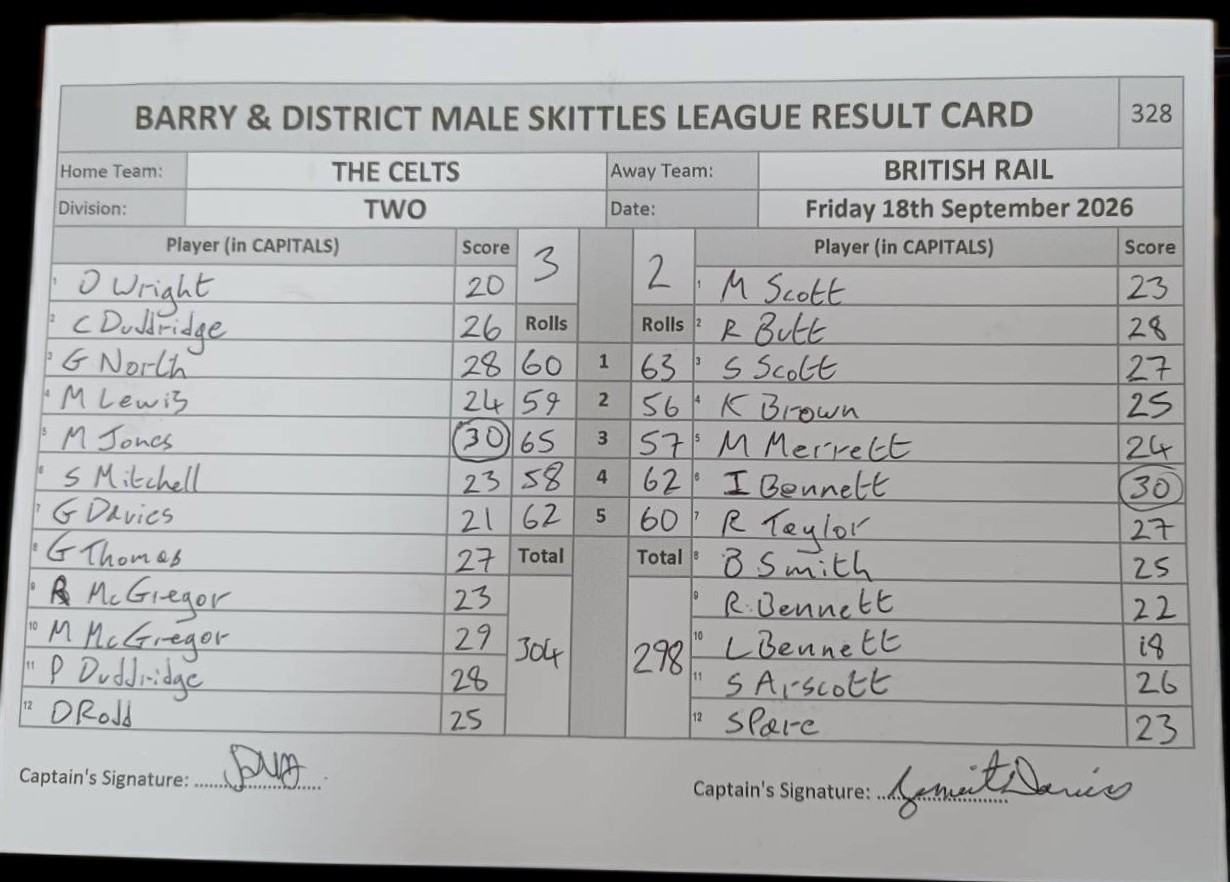 BARRY & DISTRICT MALE SKITTLES LEAGUE RESULT CARD 328
Home Team: THE CELTS Away Team: BRITISH RAIL
Division: TWO Date: Friday 18th September 2026
Player (in CAPITALS) Score 3 2 Player (in CAPITALS) Score
1 D Wright 20 1 M Scott 23
2 C Duddridge 26 Rolls Rolls 2 R Butt 28
3 G North 28 60 1 63 3 S Scott 27
4 M Lewis 24 59 2 56 4 K Brown 25
5 M Jones 30 65 3 57 5 M Merrett 24
6 S Mitchell 23 58 4 62 6 I Bennett 30
7 G Davies 21 62 5 60 7 R Taylor 27
8 G Thomas 27 Total Total 8 B Smith 25
9 R McGregor 23 9 R. Bennett 22
10 M McGregor 29 304 298 10 L Bennett 18
11 P Duddridge 28 11 S Arscott 26
12 D Rodd 25 12 S Parc 23
Captain's Signature: Captain's Signature: